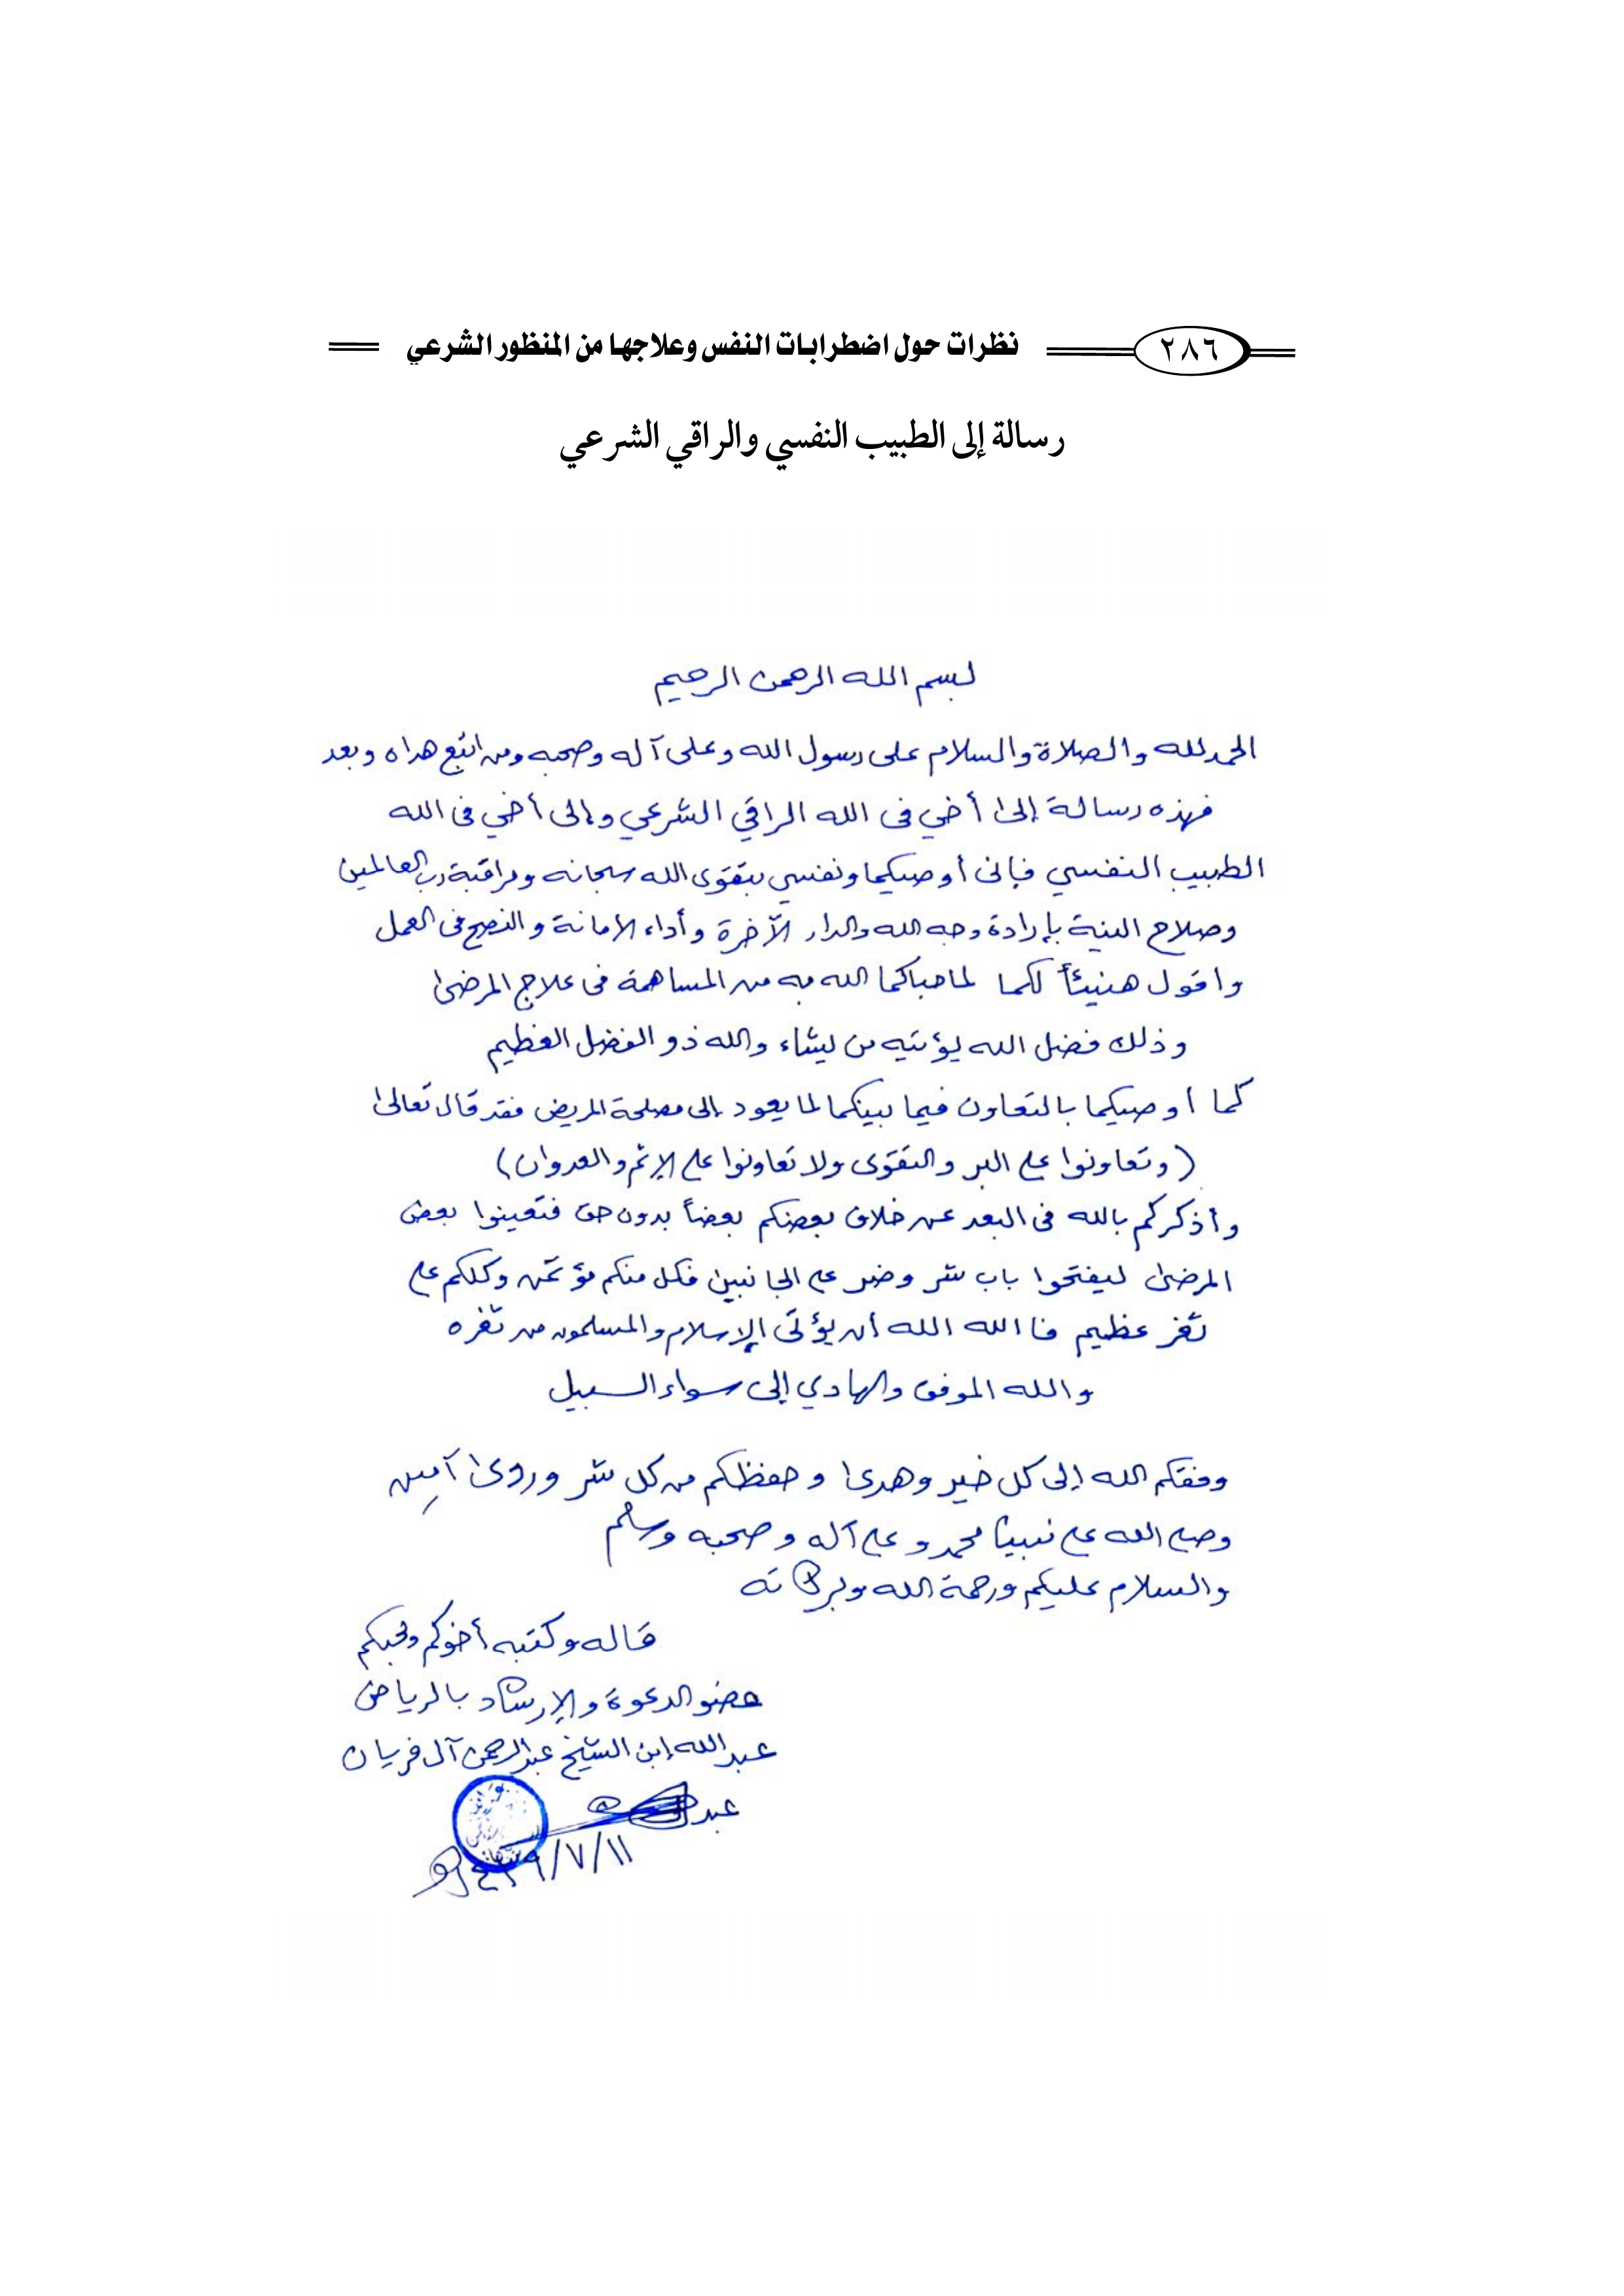 ٢٨٦ نظرات حول اضطرابات النفس وعلاجها من المنظور الشرعي
رسالة إلى الطبيب النفسي والراقي الشرعي
بسم الله الرحمن الرحيم
الحمد لله والصلاة والسلام على رسول الله وعلى آله وصحبه ومن اتبع هداه وبعد
فهذه رسالة إلى أخي في الله الراقي الشرعي وإلى أخي في الله
الطبيب النفسي فإني أوصيكما ونفسي بتقوى الله سبحانه ومراقبة رب العالمين
وصلاح النية بإرادة وجه الله والدار الآخرة وأداء الأمانة والنصح في العمل
واقول هنيئاً لكما لما حباكما الله به من المساهمة في علاج المرضى
وذلك فضل الله يؤتيه من يشاء والله ذو الفضل العظيم
كما أوصيكما بالتعاون فيما بينكما لما يعود إلى مصلحة المريض فقد قال تعالى
(وتعاونوا على البر والتقوى ولا تعاونوا على الإثم والعدوان)
وأذكركم بالله في البعد عن خلاف بعضكم بعضاً بدون حق فتعينوا بعض
المرضى ليفتحوا باب شر وضر على الجانبين فكل منكم مؤتمن وكلكم على
ثغر عظيم فا الله الله أن يؤتى الإسلام والمسلمون من ثغره
والله الموفق والهادي إلى سواء السبيل
وفقكم الله إلى كل خير وهدى وحفظكم من كل شر وردى آمين
وصلى الله على نبينا محمد وعلى آله وصحبه وسلم
والسلام عليكم ورحمة الله وبركاته
قاله وكتبه أخوكم ومحبكم
عضو الدعوة والإرشاد بالرياض
عبد الله ابن الشيخ عبد الرحمن آل فريان
١١/٧/١٤٣٩هـ